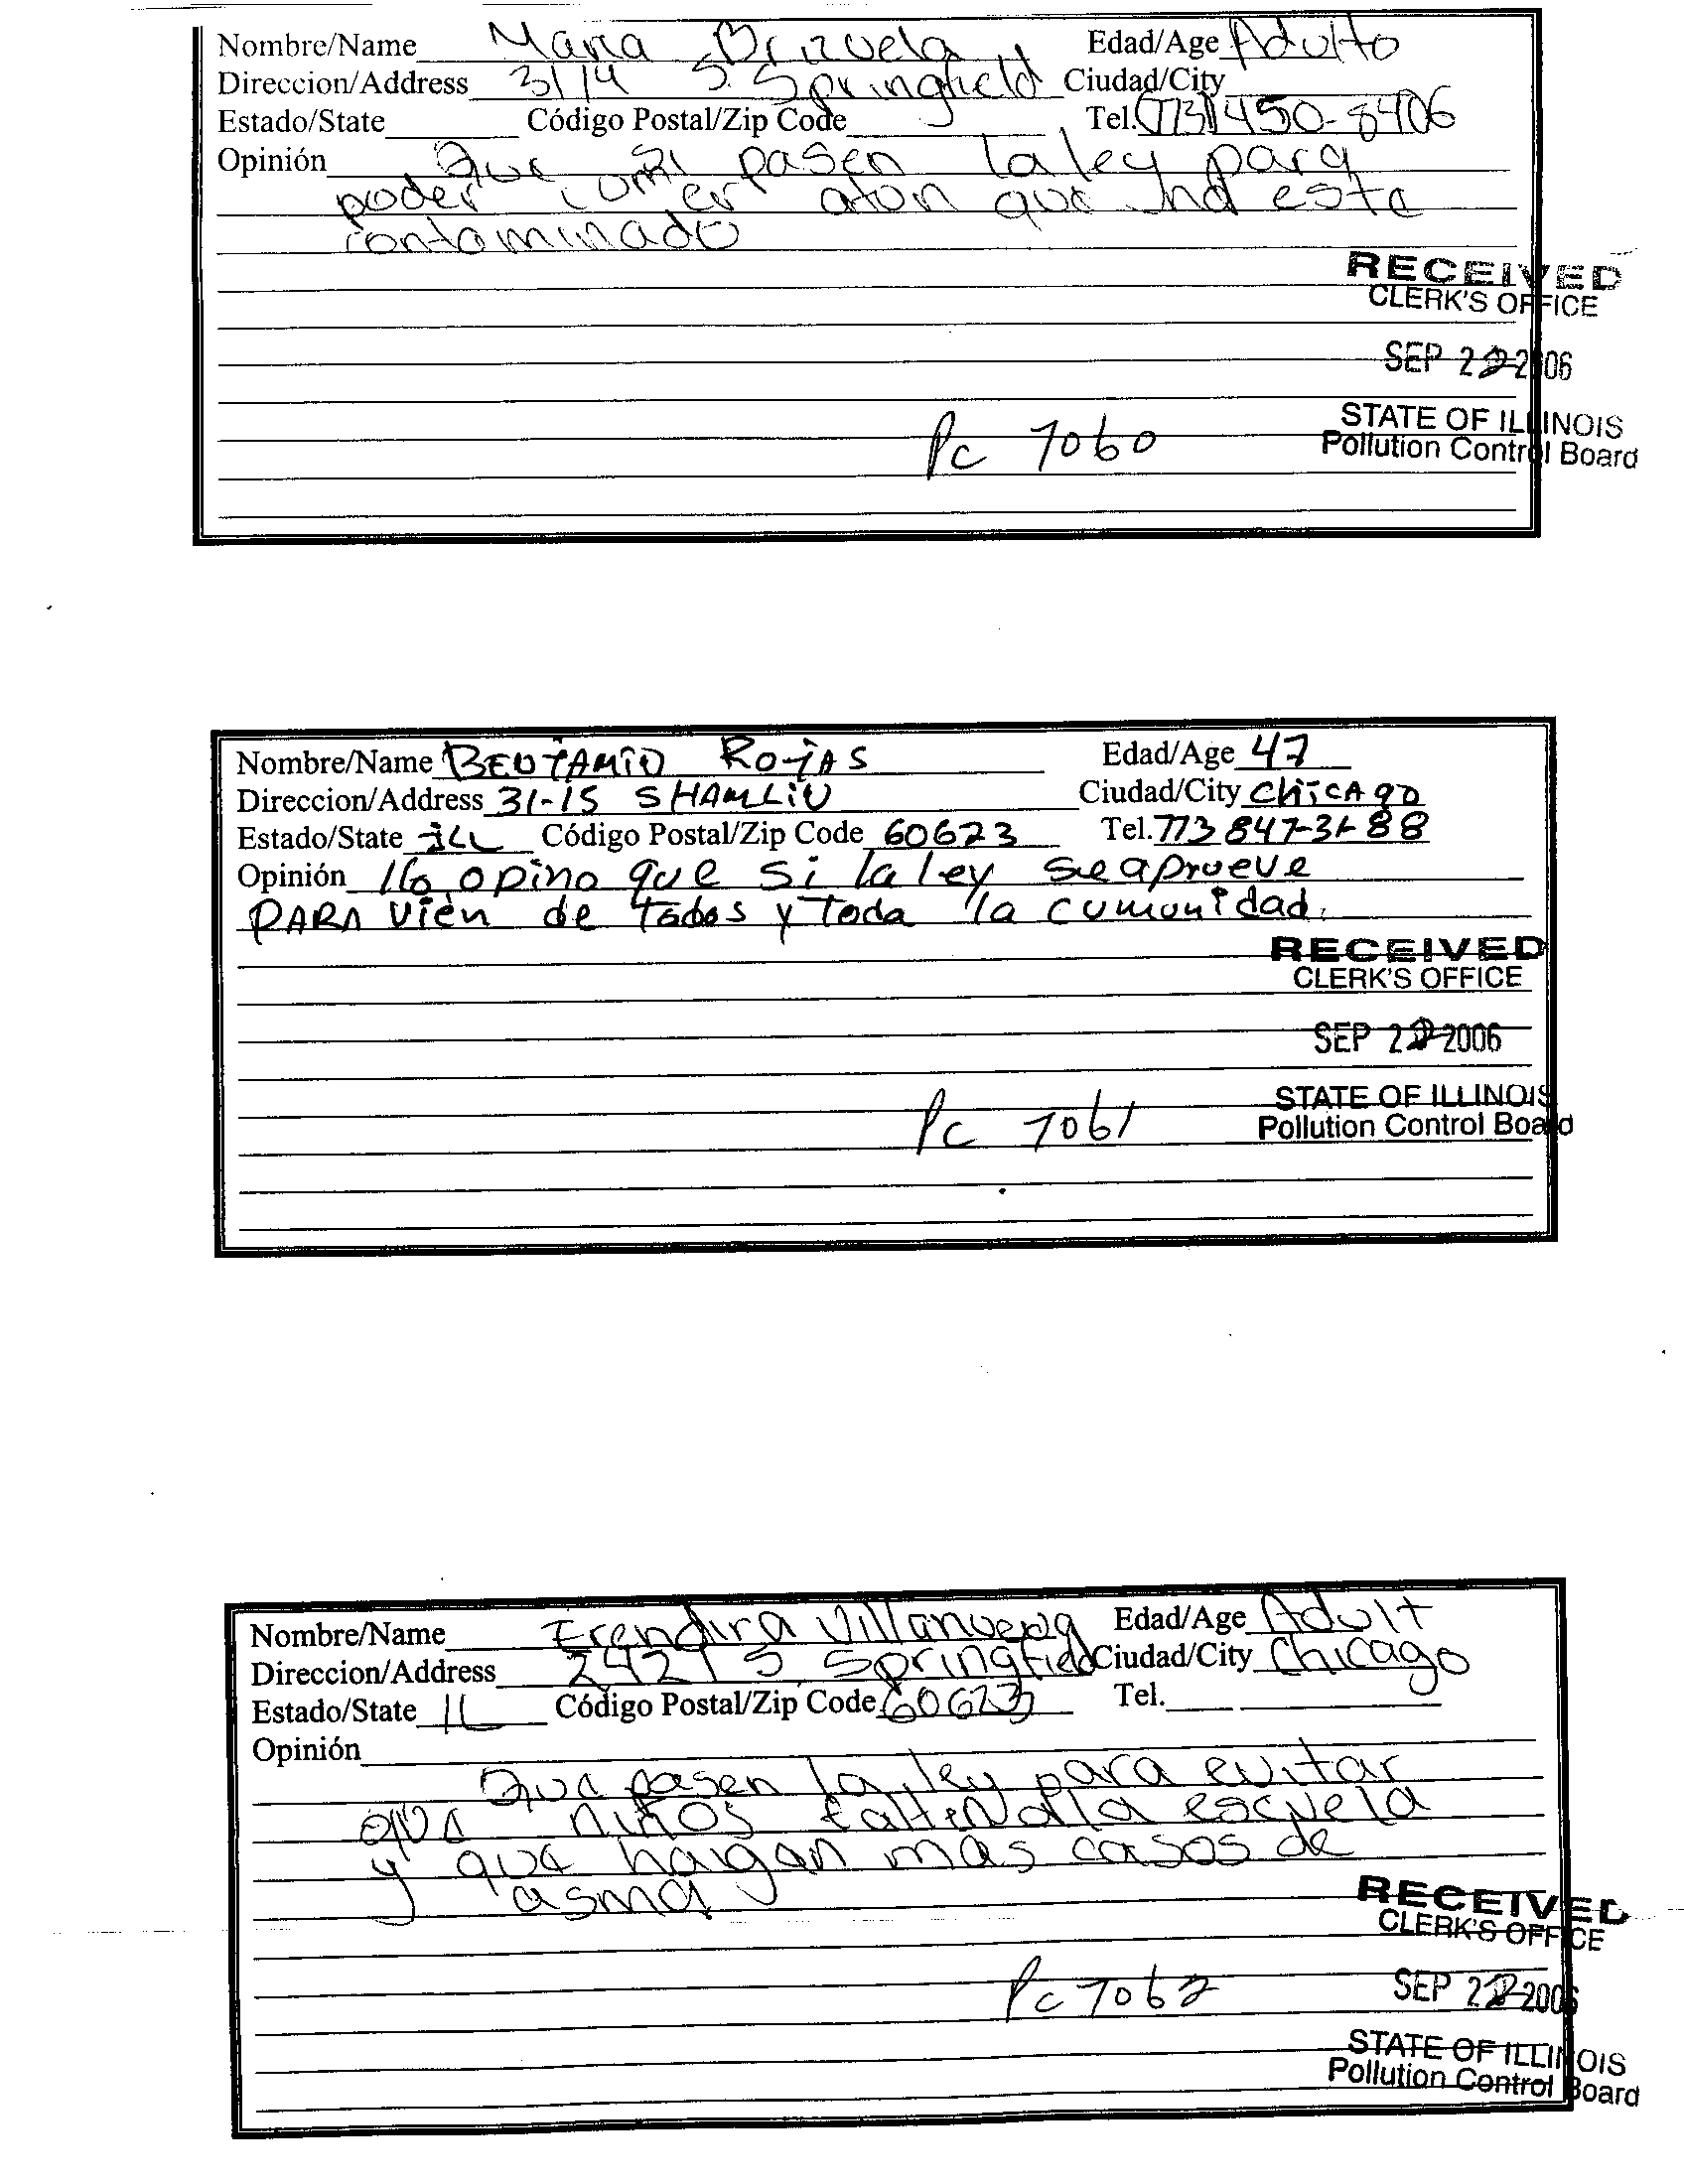 Nombre/Name Maria Brizuela Edad/Age Adulto
Direccion/Address 3114 S. Springfield Ciudad/City
Estado/State Código Postal/Zip Code Tel. (773) 450-8406
Opinión Que si pasen la ley para
poder comer atun que no esta
contaminado
RECEIVED
CLERK'S OFFICE
SEP 22 2006
STATE OF ILLINOIS
Pc 7060
Pollution Control Board
Nombre/Name BENJAMIN ROJAS Edad/Age 47
Direccion/Address 31-15 S HAMLIN Ciudad/City CHICAGO
Estado/State ILL Código Postal/Zip Code 60623 Tel. 773 847-3188
Opinión Yo opino que si la ley se aprueve
PARA vien de todos y toda la cumunidad.
RECEIVED
CLERK'S OFFICE
SEP 22 2006
STATE OF ILLINOIS
Pc 7061 Pollution Control Board
Nombre/Name Erendira Villanueva Edad/Age Adult
Direccion/Address 2421 S Springfield Ciudad/City Chicago
Estado/State IL Código Postal/Zip Code 60623 Tel.
Opinión
Que pasen la ley para evitar
que niños falten a la escuela
y que haigan mas casos de
asma.
RECEIVED
CLERK'S OFFICE
Pc 7062 SEP 22 2006
STATE OF ILLINOIS
Pollution Control Board